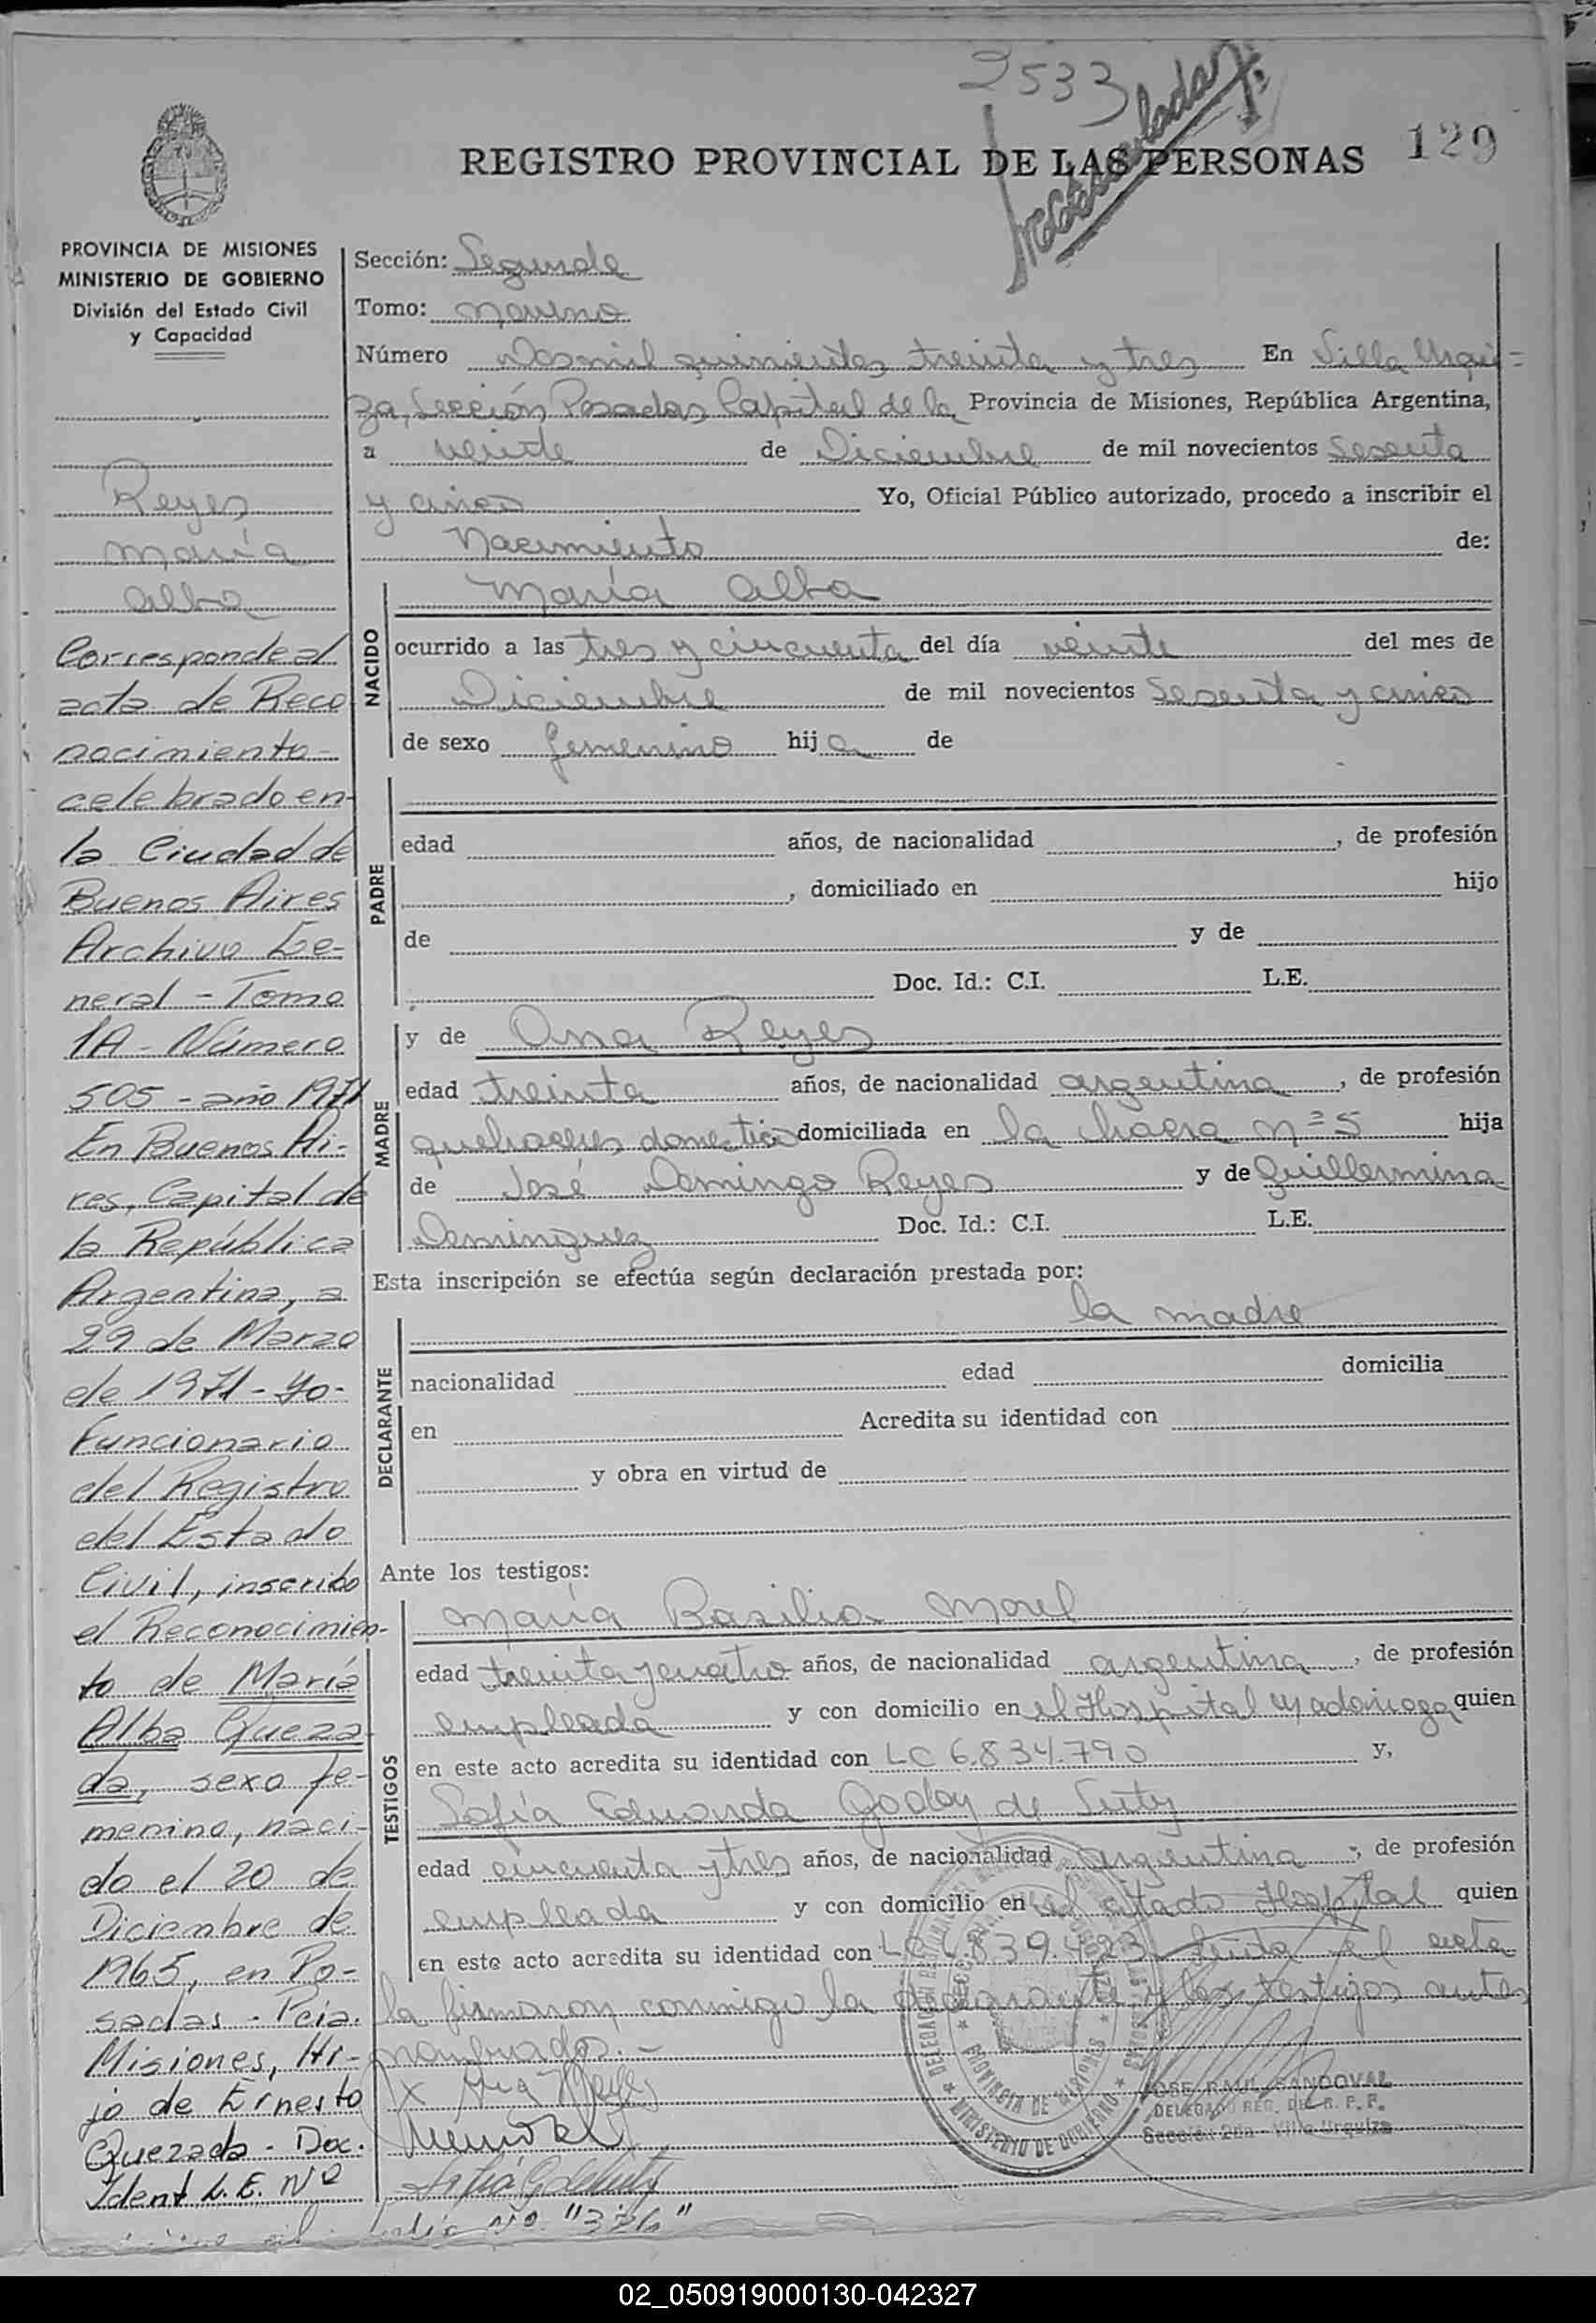 2533
REGISTRO PROVINCIAL DE LAS PERSONAS 129
PROVINCIA DE MISIONES
MINISTERIO DE GOBIERNO
División del Estado Civil
y Capacidad
Reyes
María
Alba
Corresponde al
acta de Reco
nocimiento
celebrado en
la Ciudad de
Buenos Aires
Archivo Ge-
neral - Tomo
1A - Número
505 - año 1971
En Buenos Ai-
res, Capital de
la República
Argentina, a
29 de Marzo
de 1971 - Yo -
Funcionario
del Registro
del Estado
Civil, inscribo
el Reconocimien-
to de María
Alba Queza-
da, sexo fe-
menino, naci-
do el 20 de
Diciembre de
1965, en Po-
sadas - Pcia.
Misiones, Hi-
jo de Ernesto
Quezada - Doc.
Ident L.E. Nº
Sección: Segunda
Tomo: Noveno
Número Dos mil quinientos treinta y tres En Villa Urqui=
za, Sección Posadas Capital de la Provincia de Misiones, República Argentina,
a veinte de Diciembre de mil novecientos Sesenta
y cinco Yo, Oficial Público autorizado, procedo a inscribir el
Nacimiento de:
NACIDO
María Alba
ocurrido a las tres y cincuenta del día veinte del mes de
Diciembre de mil novecientos Sesenta y cinco
de sexo femenino hija de
PADRE
edad años, de nacionalidad , de profesión
, domiciliado en hijo
de y de
Doc. Id.: C.I. L.E.
MADRE
y de Ana Reyes
edad treinta años, de nacionalidad argentina , de profesión
quehaceres domestico domiciliada en la chacra nº 5 hija
de José Domingo Reyes y de Guillermina
Dominguez Doc. Id.: C.I. L.E.
Esta inscripción se efectúa según declaración prestada por:
DECLARANTE
la madre
nacionalidad edad domicilia
en Acredita su identidad con
y obra en virtud de
Ante los testigos:
TESTIGOS
María Basilia Morel
edad treinta y cuatro años, de nacionalidad argentina , de profesión
empleada y con domicilio en el Hospital Madariaga quien
en este acto acredita su identidad con LC 6.834.790 y,
Sofía Edmunda Godoy de
edad cincuenta y tres años, de nacionalidad argentina , de profesión
empleada y con domicilio en el citado Hospital quien
en este acto acredita su identidad con LC 6.839.423 Leida el acta
la firmaron conmigo la declarante y los testigos antes
nombrados.-
x Ana Reyes
JOSE RAUL SANDOVAL
DELEGADO REG. DEL R. P. P.
Sección 2da - Villa Urquiza
PROVINCIA DE MISIONES
MINISTERIO DE GOBIERNO
folio Nº "376"
02_050919000130-042327